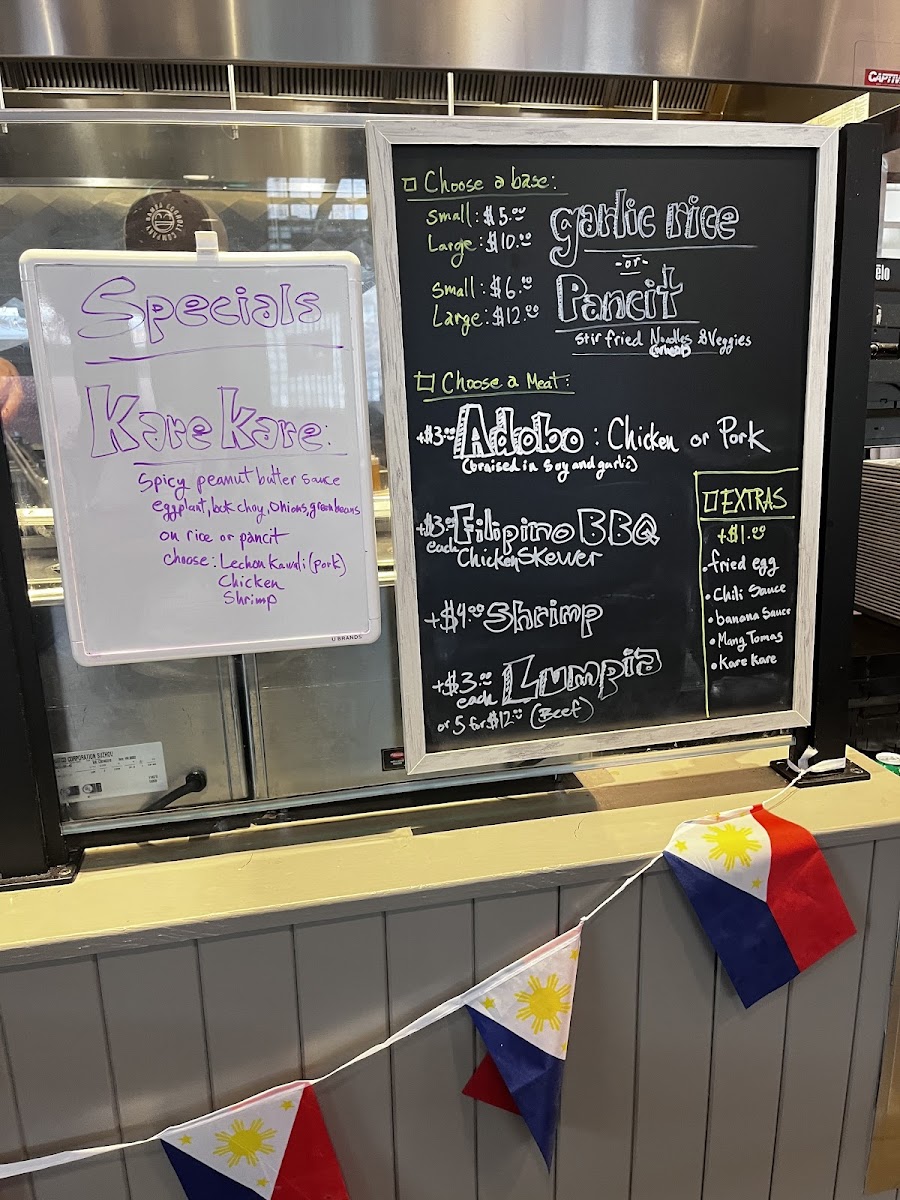 CAPTIV
MAMBA COOKOUT COMPANY
Specials
Kare Kare:
Spicy peanut butter sauce
eggplant, bok choy, onions, green beans
on rice or pancit
choose: Lechon Kawali (pork)
Chicken
Shrimp
U BRANDS
Choose a base:
Small: $5.00
Large: $10.00
garlic rice
-or-
Small: $6.00
Large: $12.00
Pancit
stir fried Noodles & Veggies
(wheat)
Choose a Meat:
+$3.00 Adobo: Chicken or Pork
(braised in soy and garlic)
+$3.00 each Filipino BBQ
Chicken Skewer
+$4.00 Shrimp
+$3.00 each Lumpia
or 5 for $12.00 (Beef)
EXTRAS
+$1.00
• fried egg
• Chili Sauce
• banana Sauce
• Mang Tomas
• Kare Kare